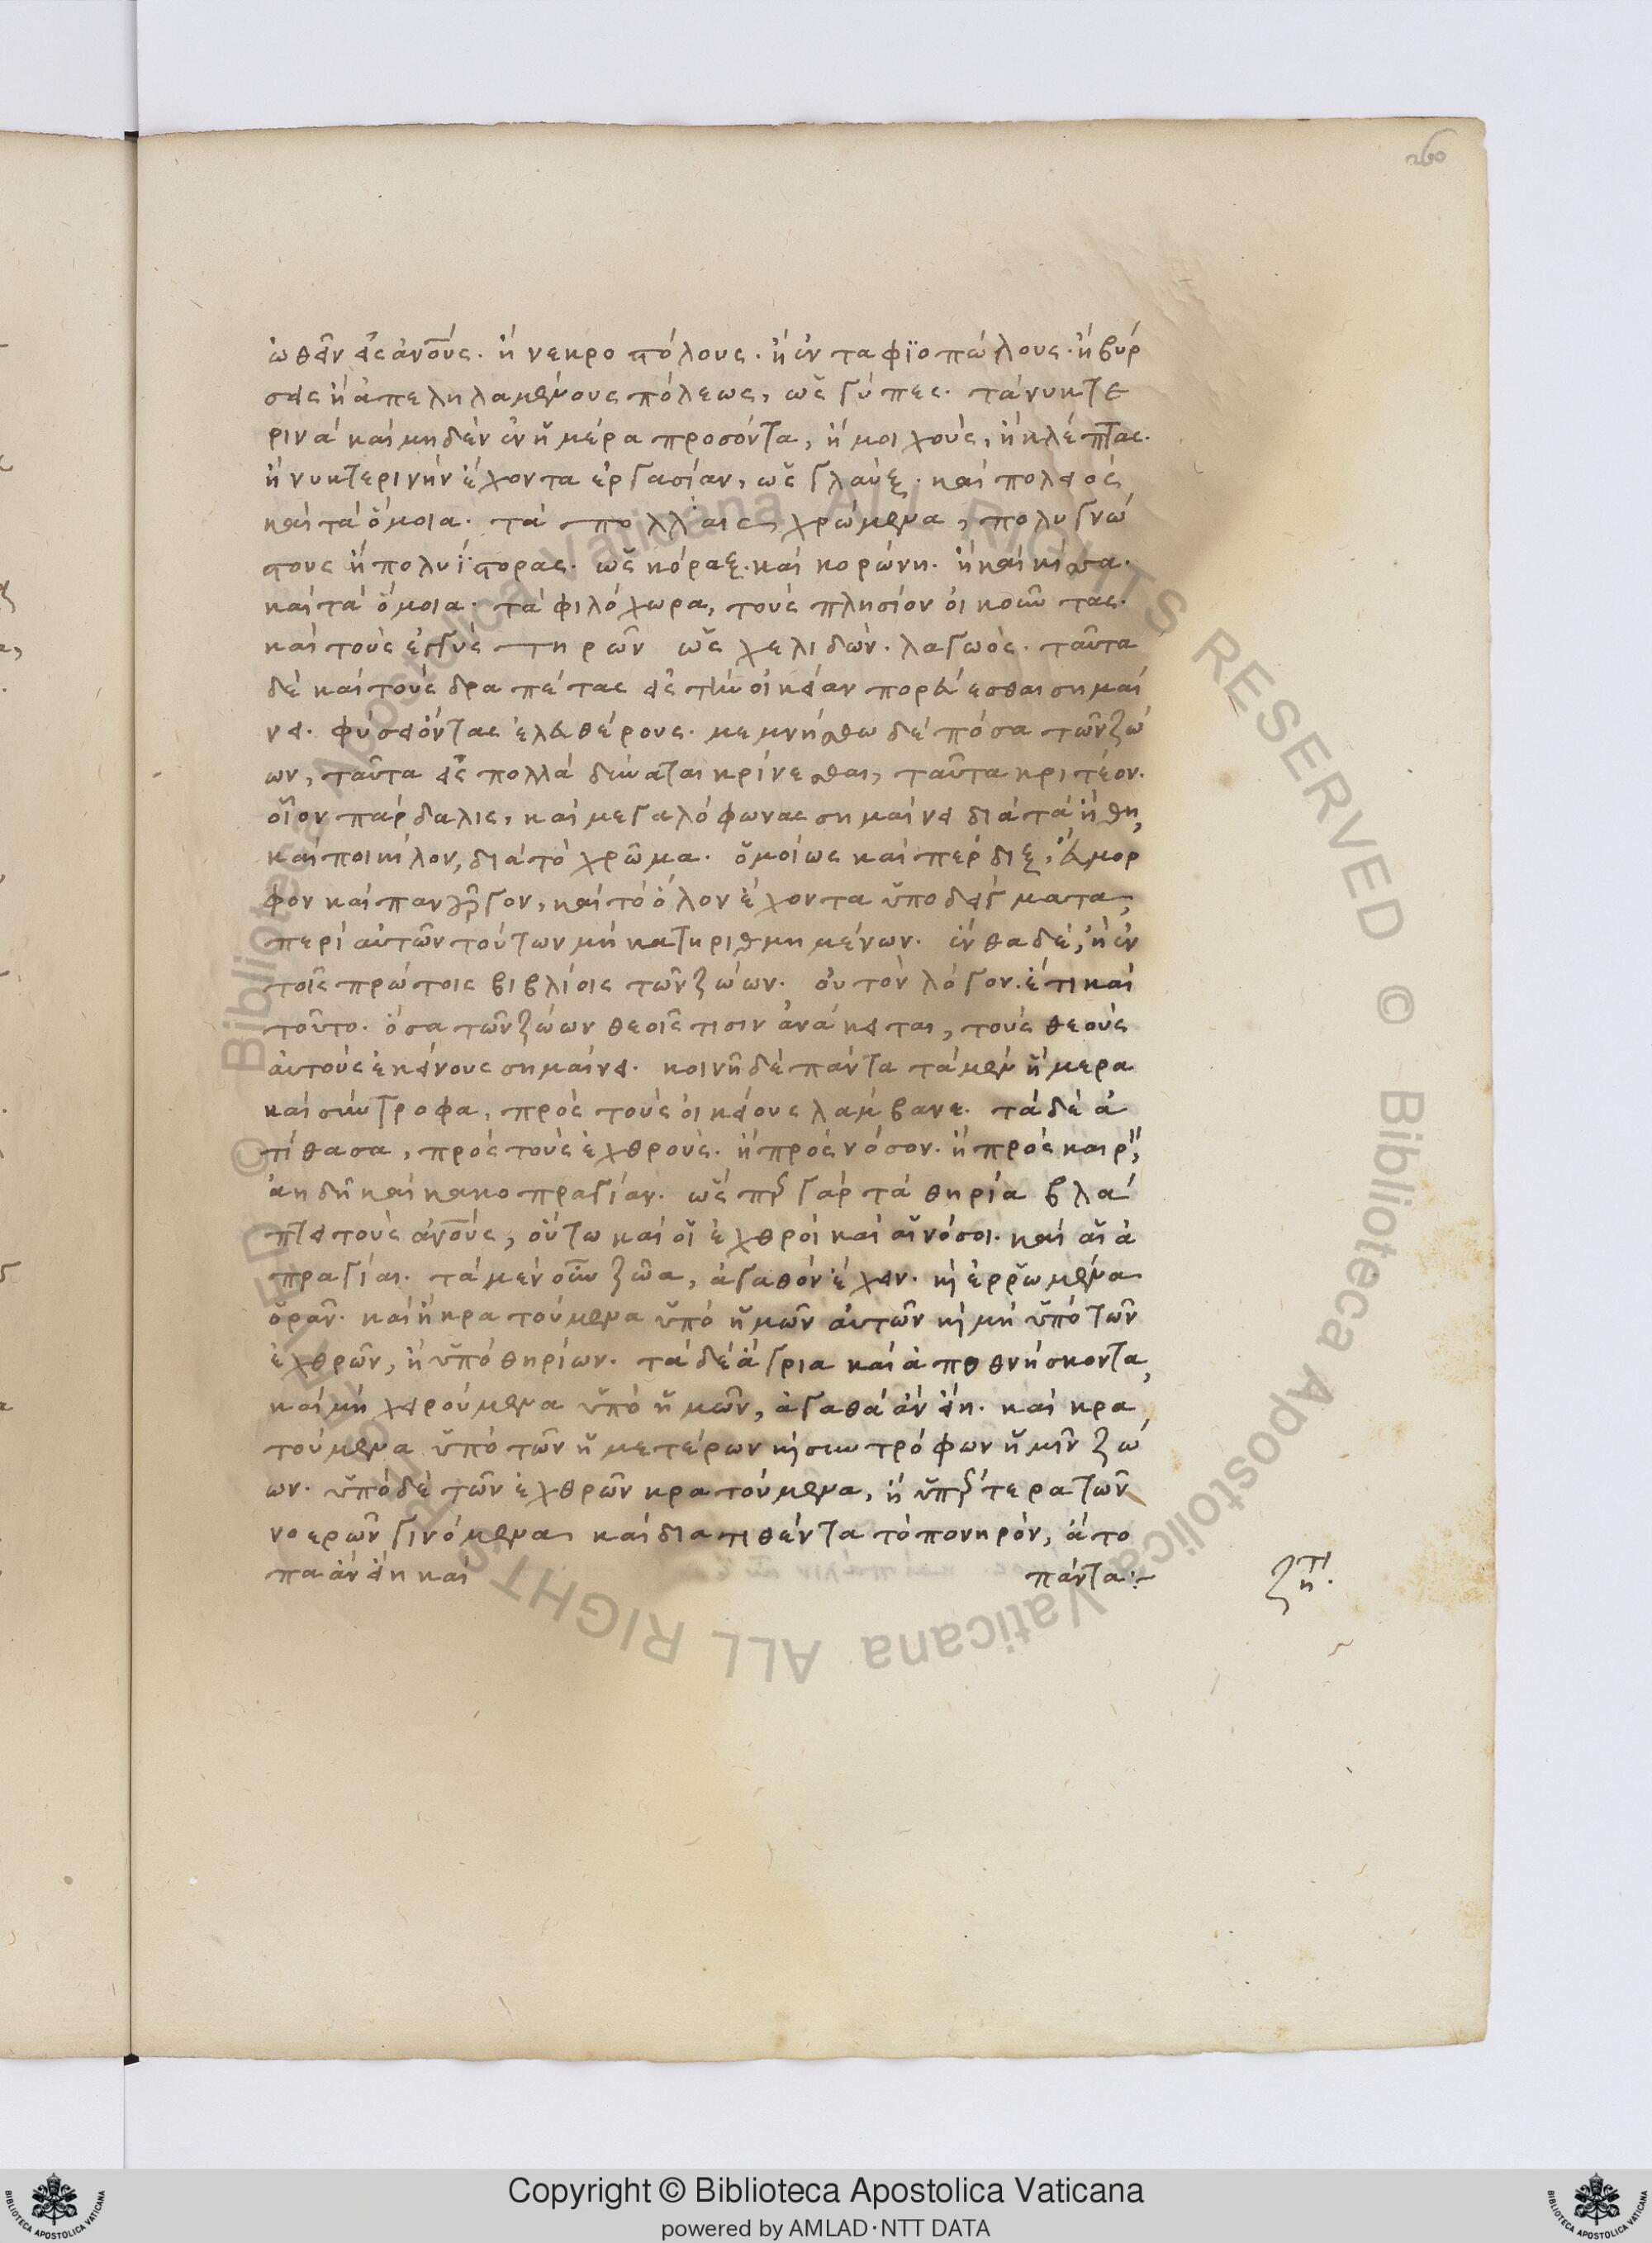 260
ὠθεῖν εἰς ἀν̅ους. ἢ νεκροστόλους. ἢ ἐνταφϊοπώλους. ἢ βύρ
σεις ἢ ἀπεληλαμένους πόλεως, ὡς γύπες. τὰ νυκτε
ρινὰ καὶ μηδὲν ἐν ἡμέρα προσόντα, ἢ μοιχοὺς, ἢ κλέπτας.
ἢ νυκτερινὴν ἔχοντα ἐργασίαν, ὡς γλαὺξ. καὶ
καὶ τὰ ὅμοια. τὰ πολλαῖς χρώμενα, πολυγνώ
στους ἢ πολυΐστορας. ὡς κόραξ. καὶ κορώνη. ἢ καὶ κίσσα.
καὶ τὰ ὅμοια. τὰ φιλόχωρα, τοὺς πλησίον οἰκοῦντας.
καὶ τοὺς ἐγγὺς τηρῶν ὡς χελιδών. λαγωὸς. ταῦτα
δὲ καὶ τοὺς δραπέτας εἰς τὴν οἰκείαν πορεύεσθαι σημαί
νει. φύσει ὄντας ἐλευθέρους. μεμνήσθω δὲ πόσα τῶν ζώ
ων, ταῦτα εἰς πολλὰ δύναται κρίνεσθαι, ταῦτα κριτέον.
οἷον πάρδαλις, καὶ μεγαλόφωνας σημαίνει διὰ τὰ ἤθη,
καὶ ποικίλον, διὰ τὸ χρῶμα. ὁμοίως καὶ πέρδιξ, εὔμορ
φον καὶ πανοῦργον, καὶ τὸ ὅλον ἔχοντα ὑποδείγματα,
περὶ αὐτῶν τούτων μὴ κατηριθμημένων. ἐνθαδὲ, ἢ ἐν
τοῖς πρώτοις βιβλίοις τῶν ζώων. οὐ τὸν λόγον. ἔτι καὶ
τοῦτο. ὅσα τῶν ζώων θεοῖς τισιν ἀνάκειται, τοὺς θεοὺς
αὐτοὺς ἐκείνους σημαίνει. κοινῇ δὲ πάντα τὰ μὲν ἥμερα
καὶ σύντροφα, πρὸς τοὺς οἰκείους λάμβανε. τὰ δὲ ἀ
τίθασα, πρὸς τοὺς ἐχθροὺς. ἢ πρὸς νόσον. ἢ πρὸς καιρὸν,
ἀηδῆ καὶ κακοπραγίαν. ὥσπερ γὰρ τὰ θηρία βλά
πτει τοὺς ἀν̅ους, οὕτω καὶ οἱ ἐχθροὶ καὶ αἱ νόσοι. καὶ αἱ ἀ
πραγίαι. τὰ μὲν οὖν ζῶα, ἀγαθὸν ἔχειν. κὶ ἐρρωμένα
ὁρᾶν. καὶ ἢ κρατούμενα ὑπὸ ἡμῶν αὐτῶν κὶ μὴ ὑπὸ τῶν
ἐχθρῶν, ἢ ὑπὸ θηρίων. τὰ δὲ ἄγρια καὶ ἀποθνήσκοντα,
καὶ μὴ χειρούμενα ὑπὸ ἡμῶν, ἀγαθὰ ἂν εἴη. καὶ κρα
τούμενα ὑπὸ τῶν ἡμετέρων κὶ συντρόφων ἡμῖν ζώ
ων. ὑπὸ δὲ τῶν ἐχθρῶν κρατούμενα, ἢ ὑπέρτερα τῶν
νοερῶν γινόμενα καὶ διατιθέντα τὸ πονηρόν, ἄτο
πα ἂν εἴη καὶ πάντα:~
ζητ.